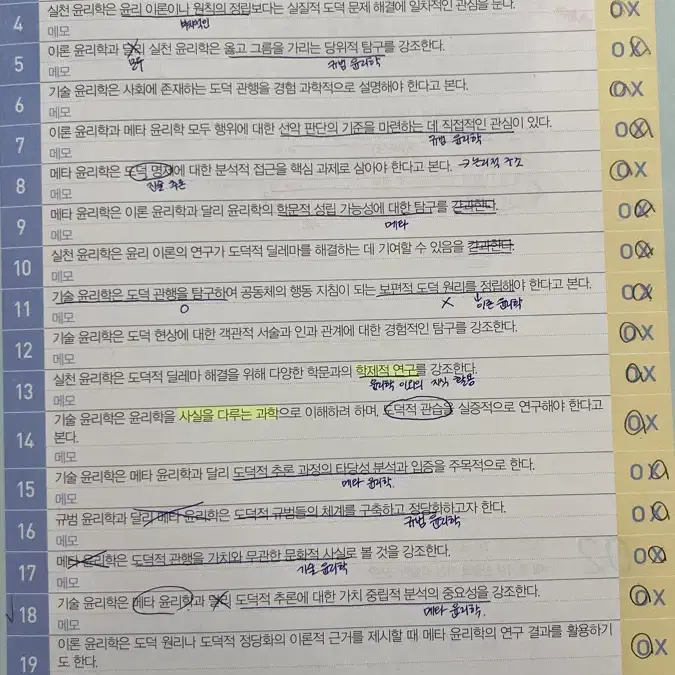 4 실천 윤리학은 윤리 이론이나 원칙의 정립보다는 실질적 도덕 문제 해결에 일차적인 관심을 둔다. O X
메모
5 이론 윤리학과 달리 실천 윤리학은 옳고 그름을 가리는 당위적 탐구를 강조한다. O X
모두 규범 윤리학
메모
6 기술 윤리학은 사회에 존재하는 도덕 관행을 경험 과학적으로 설명해야 한다고 본다. O X
메모
7 이론 윤리학과 메타 윤리학 모두 행위에 대한 선악 판단의 기준을 마련하는 데 직접적인 관심이 있다. O X
규범 윤리학
메모
8 메타 윤리학은 도덕 명제에 대한 분석적 접근을 핵심 과제로 삼아야 한다고 본다. → 논리적 구조 O X
메모
9 메타 윤리학은 이론 윤리학과 달리 윤리학의 학문적 성립 가능성에 대한 탐구를 간과한다. O X
메타
메모
10 실천 윤리학은 윤리 이론의 연구가 도덕적 딜레마를 해결하는 데 기여할 수 있음을 간과한다. O X
메모
11 기술 윤리학은 도덕 관행을 탐구하여 공동체의 행동 지침이 되는 보편적 도덕 원리를 정립해야 한다고 본다. O X
O X 이론 윤리학
메모
12 기술 윤리학은 도덕 현상에 대한 객관적 서술과 인과 관계에 대한 경험적인 탐구를 강조한다. O X
메모
13 실천 윤리학은 도덕적 딜레마 해결을 위해 다양한 학문과의 학제적 연구를 강조한다. O X
윤리학 이외의 지식 활용
메모
14 기술 윤리학은 윤리학을 사실을 다루는 과학으로 이해하려 하며, 도덕적 관습을 실증적으로 연구해야 한다고 O X
본다.
메모
15 기술 윤리학은 메타 윤리학과 달리 도덕적 추론 과정의 타당성 분석과 입증을 주목적으로 한다. O X
메타 윤리학.
메모
16 규범 윤리학과 달리 메타 윤리학은 도덕적 규범들의 체계를 구축하고 정당화하고자 한다. O X
규범 윤리학
메모
17 메타 윤리학은 도덕적 관행을 가치와 무관한 문화적 사실로 볼 것을 강조한다. O X
기술 윤리학
메모
18 기술 윤리학은 메타 윤리학과 달리 도덕적 추론에 대한 가치 중립적 분석의 중요성을 강조한다. O X
메타 윤리학.
메모
19 이론 윤리학은 도덕 원리나 도덕적 정당화의 이론적 근거를 제시할 때 메타 윤리학의 연구 결과를 활용하기 O X
도 한다.